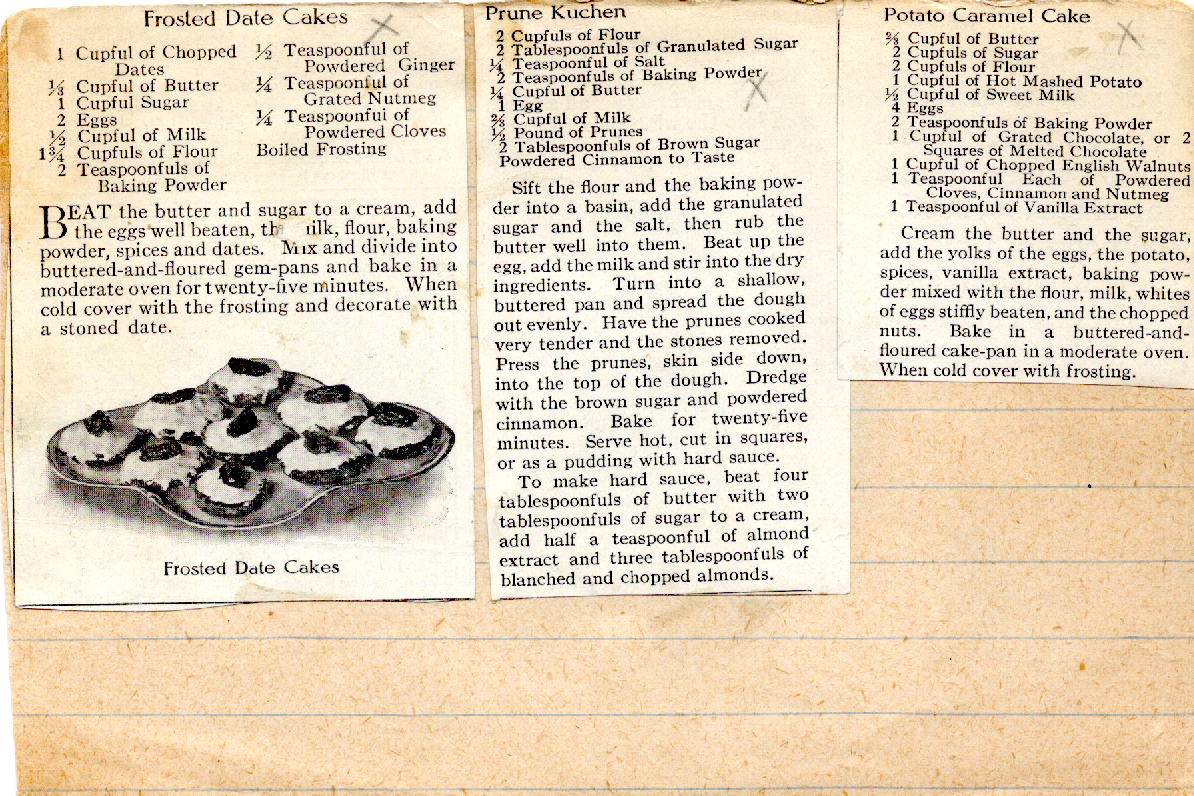 Frosted Date Cakes
1 Cupful of Chopped
Dates
⅓ Cupful of Butter
1 Cupful Sugar
2 Eggs
½ Cupful of Milk
1¾ Cupfuls of Flour
2 Teaspoonfuls of
Baking Powder
½ Teaspoonful of
Powdered Ginger
¼ Teaspoonful of
Grated Nutmeg
¼ Teaspoonful of
Powdered Cloves
Boiled Frosting
BEAT the butter and sugar to a cream, add
the eggs well beaten, th ilk, flour, baking
powder, spices and dates. Mix and divide into
buttered-and-floured gem-pans and bake in a
moderate oven for twenty-five minutes. When
cold cover with the frosting and decorate with
a stoned date.
Frosted Date Cakes
Prune Kuchen
2 Cupfuls of Flour
2 Tablespoonfuls of Granulated Sugar
¼ Teaspoonful of Salt
2 Teaspoonfuls of Baking Powder
¼ Cupful of Butter
1 Egg
⅔ Cupful of Milk
½ Pound of Prunes
2 Tablespoonfuls of Brown Sugar
Powdered Cinnamon to Taste
Sift the flour and the baking pow-
der into a basin, add the granulated
sugar and the salt, then rub the
butter well into them. Beat up the
egg, add the milk and stir into the dry
ingredients. Turn into a shallow,
buttered pan and spread the dough
out evenly. Have the prunes cooked
very tender and the stones removed.
Press the prunes, skin side down,
into the top of the dough. Dredge
with the brown sugar and powdered
cinnamon. Bake for twenty-five
minutes. Serve hot, cut in squares,
or as a pudding with hard sauce.
To make hard sauce, beat four
tablespoonfuls of butter with two
tablespoonfuls of sugar to a cream,
add half a teaspoonful of almond
extract and three tablespoonfuls of
blanched and chopped almonds.
Potato Caramel Cake
⅔ Cupful of Butter
2 Cupfuls of Sugar
2 Cupfuls of Flour
1 Cupful of Hot Mashed Potato
½ Cupful of Sweet Milk
4 Eggs
2 Teaspoonfuls of Baking Powder
1 Cupful of Grated Chocolate, or 2
Squares of Melted Chocolate
1 Cupful of Chopped English Walnuts
1 Teaspoonful Each of Powdered
Cloves, Cinnamon and Nutmeg
1 Teaspoonful of Vanilla Extract
Cream the butter and the sugar,
add the yolks of the eggs, the potato,
spices, vanilla extract, baking pow-
der mixed with the flour, milk, whites
of eggs stiffly beaten, and the chopped
nuts. Bake in a buttered-and-
floured cake-pan in a moderate oven.
When cold cover with frosting.